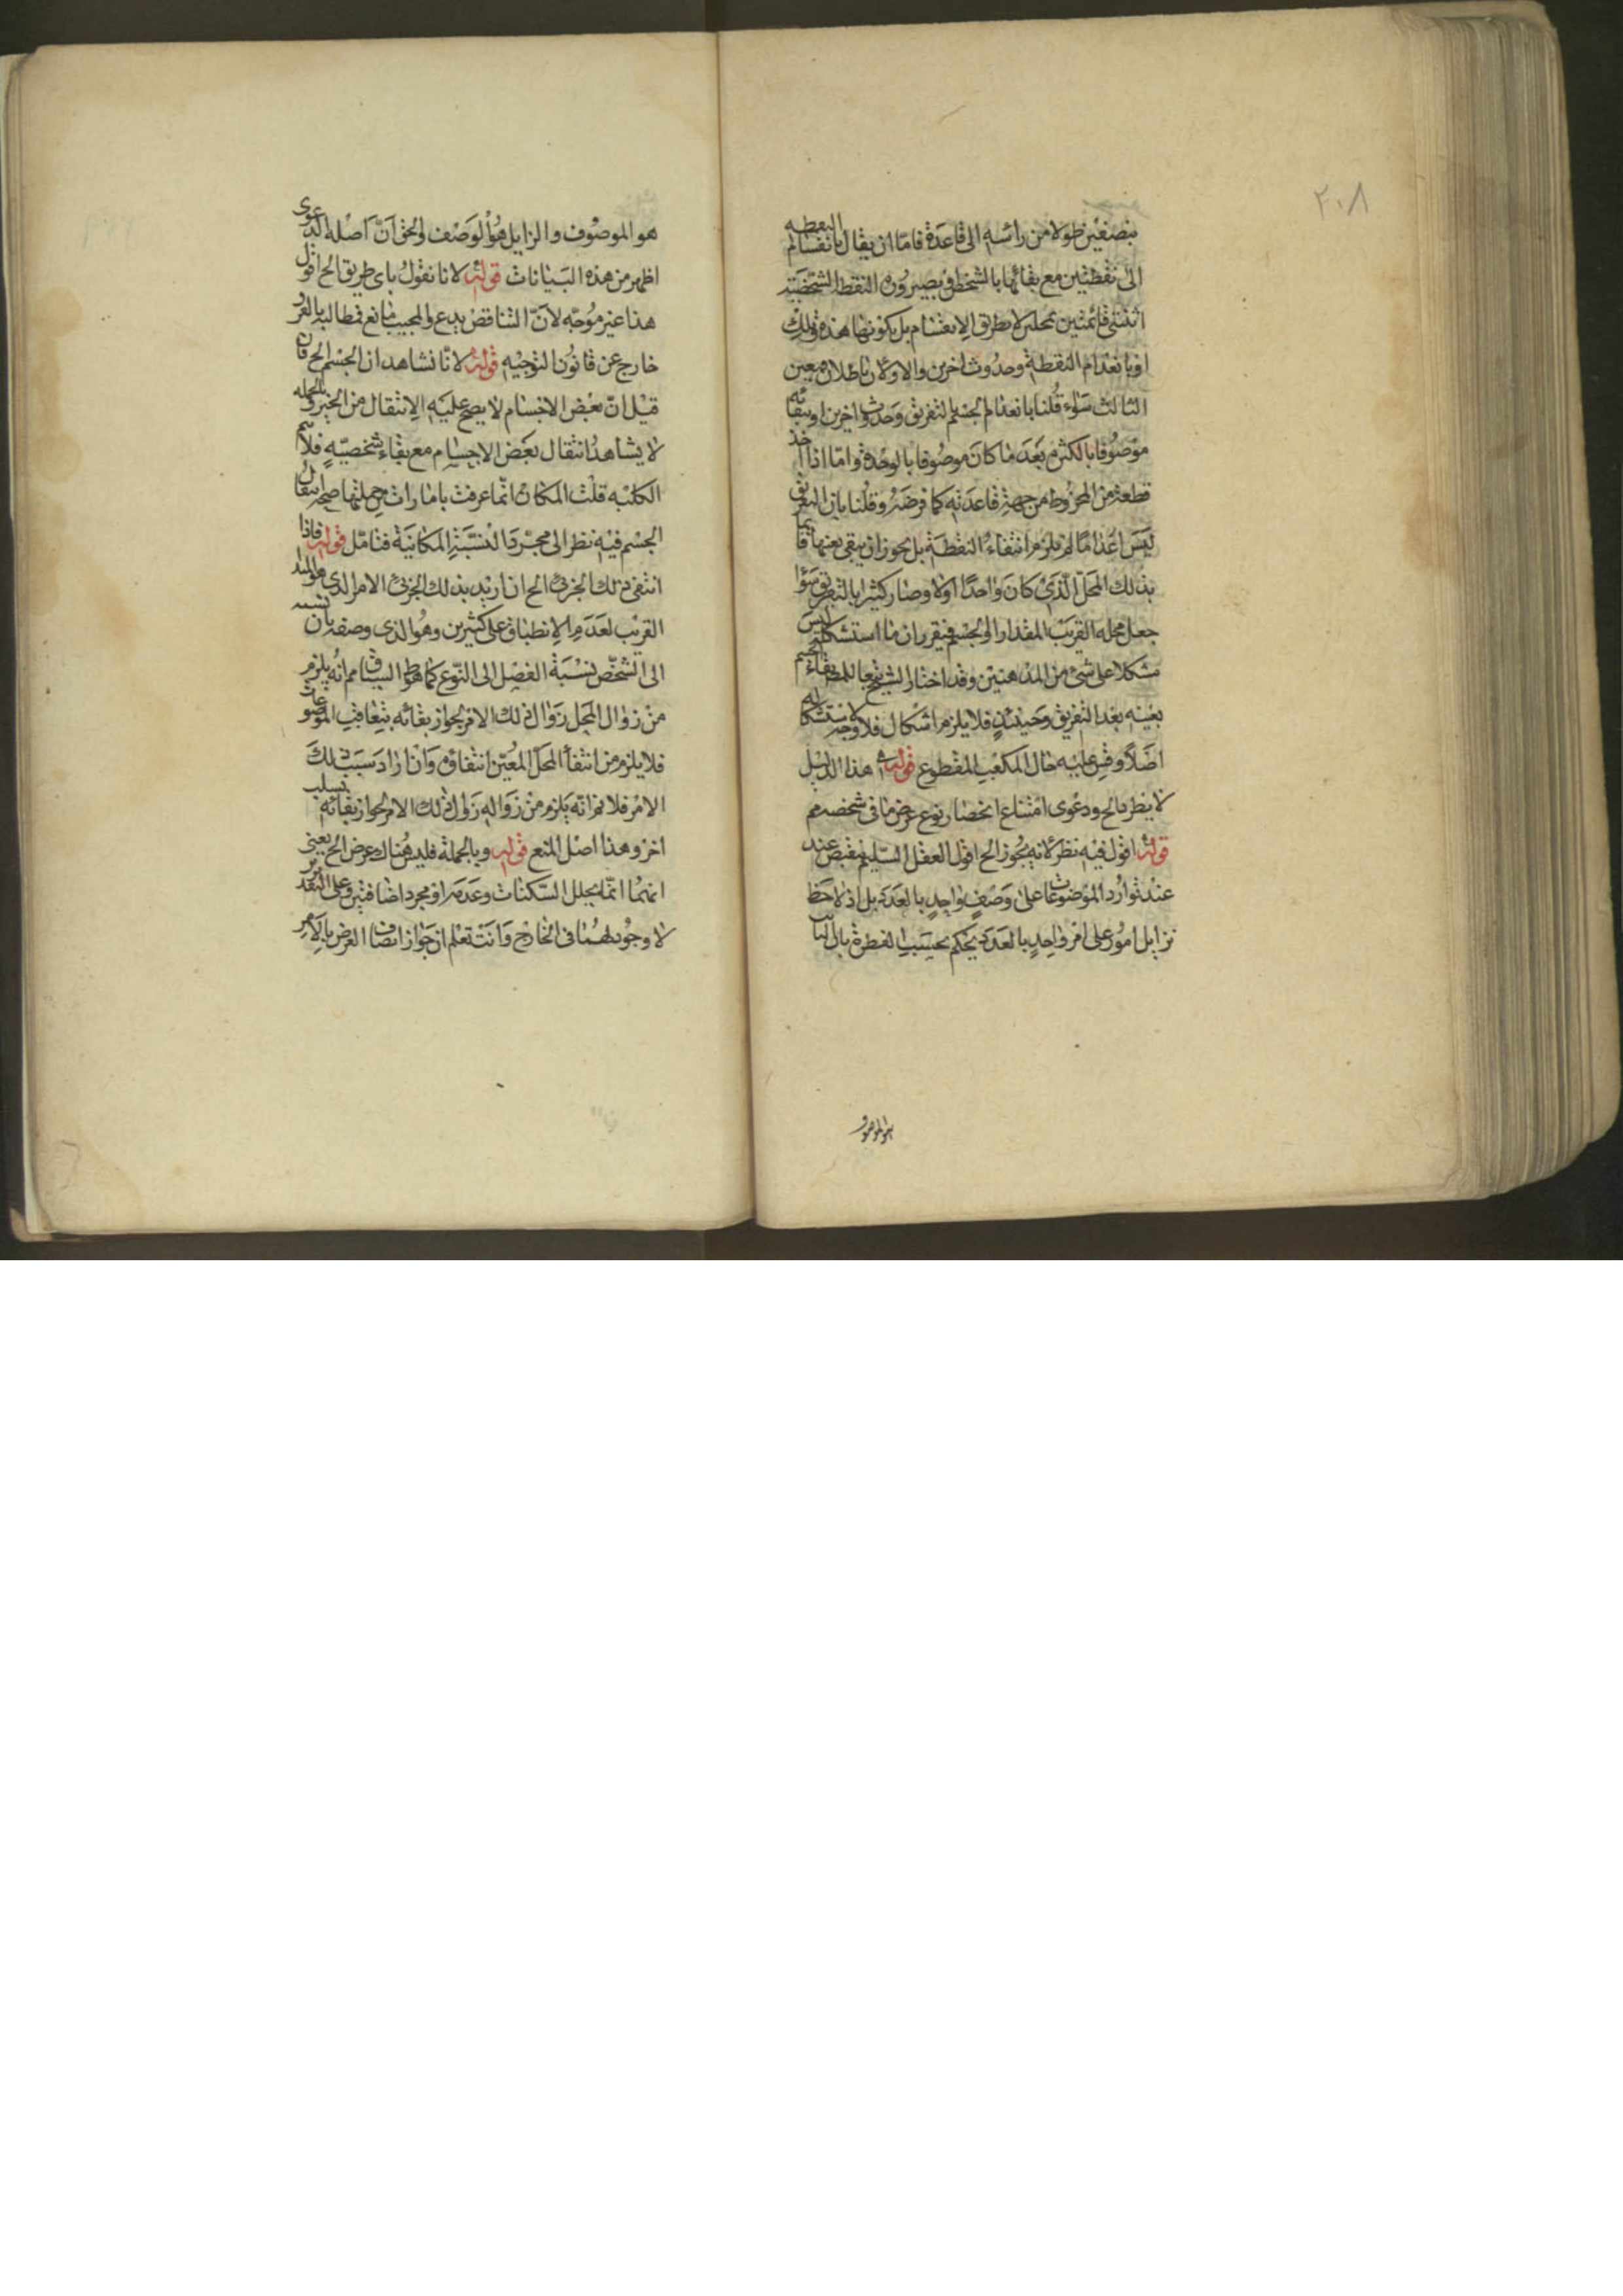 ٢٠٨
بنصفين طولا من رأسه الى قاعدة فاما ان يقال بانقسام النقطه
الى نقطتين مع بقائها بالشخص بصيرورة النقطة الشخصية
اثنتين قائمتين بمحلين لا بطريق الانقسام بل بكونها هذه وتلك
او بانعدام النقطة وحدوث اخرين والاولان باطلان فتعين
الثالث سواء قلنا بانعدام الجسم بالتفريق وحدوث اخرين او ببقائه
موصوفا بالكثرة بعد ما كان موصوفا بالوحدة واما اذا اخذ
قطعة من المخروط من جهة قاعدته كما فرضه وقلنا بان التفريق
ليس اعداما لم يلزم انتفاء النقطة بل يجوز ان يبقى بعينها قائما
بذلك المحل الذي كان واحدا اولا وصار كثيرا بالتفريق سواء
جعل محله القريب المقدار او الجسم فيقرر ان ما استشكله ليس
مشكلا على شئ من المذهبين وقد اختار الشيخ بقاء الجسم
بعينه بعد التفريق وحينئذ فلا يلزم اشكال فلا وجه لاستشكاله
اصلا وقس عليه حال المكعب المقطوع قوله هذا الدليل
لا ينظر الخ ودعوى امتناع انحصار نوع عرض ما في شخصه مم
قوله اقول فيه نظر لانه يجوز الخ اقول العقل السليم منقبض عند
عند توارد الموضوعات على وصف واحد بالعدد بل اذ لاحظ
تزايل امور على امر واحد بالعدد يحكم بحسب الفطرة بان الثابت
هو الموصو
هو الموصوف والزايل هو الوصف والحق ان اصله الدعوى
اظهر من هذه البيانات قوله لانا نقول باى طريق الخ اقول
هذا غير موجه لان الناقض يدع والمجيب مانع فمطالبه بالفرق
خارج عن قانون التوجيه قوله لانا نشاهد ان الجسم الخ فان
قيل ان بعض الاجسام لا يصح عليه الانتقال من الحيز وبالجمله
لا يشاهد انتقال بعض الاجسام مع بقاء شخصيته فلا تتم
الكليه قلت المكان انما عرفت بامارات من جملتها صحة انتقال
الجسم فيه نظر الى مجرد النسبة المكانية فتامل قوله فاذا
انتفى ذلك الجزئى الخ ان اريد بذلك الجزئى الامر الذى هو المبدا
القريب لعدم الانطباق على كثيرين وهو الذى وصفه بان نسبته
الى الشخص نسبة الفصل الى النوع كما هو السياق مم انه يلزم
من زوال المحل زوال ذلك الامر لجواز بقائه بتعاقب الموضوعات
فلا يلزم من انتفأ المحل المعين انتفاؤه وان اراد سبب ذلك
الامر فلا نم انه يلزم من زواله زوال ذلك الامر لجواز بقائه بسبب
اخر وهذا اصل المنع قوله وبالجملة فليس هناك عرض الخ يعنى
انهما انما يجلل السكنات وعدمه او مجرد اضافتين وعلى التقديرين
لا وجود لهما فى الخارج وانت تعلم ان جواز اتصاف العرض بالامر